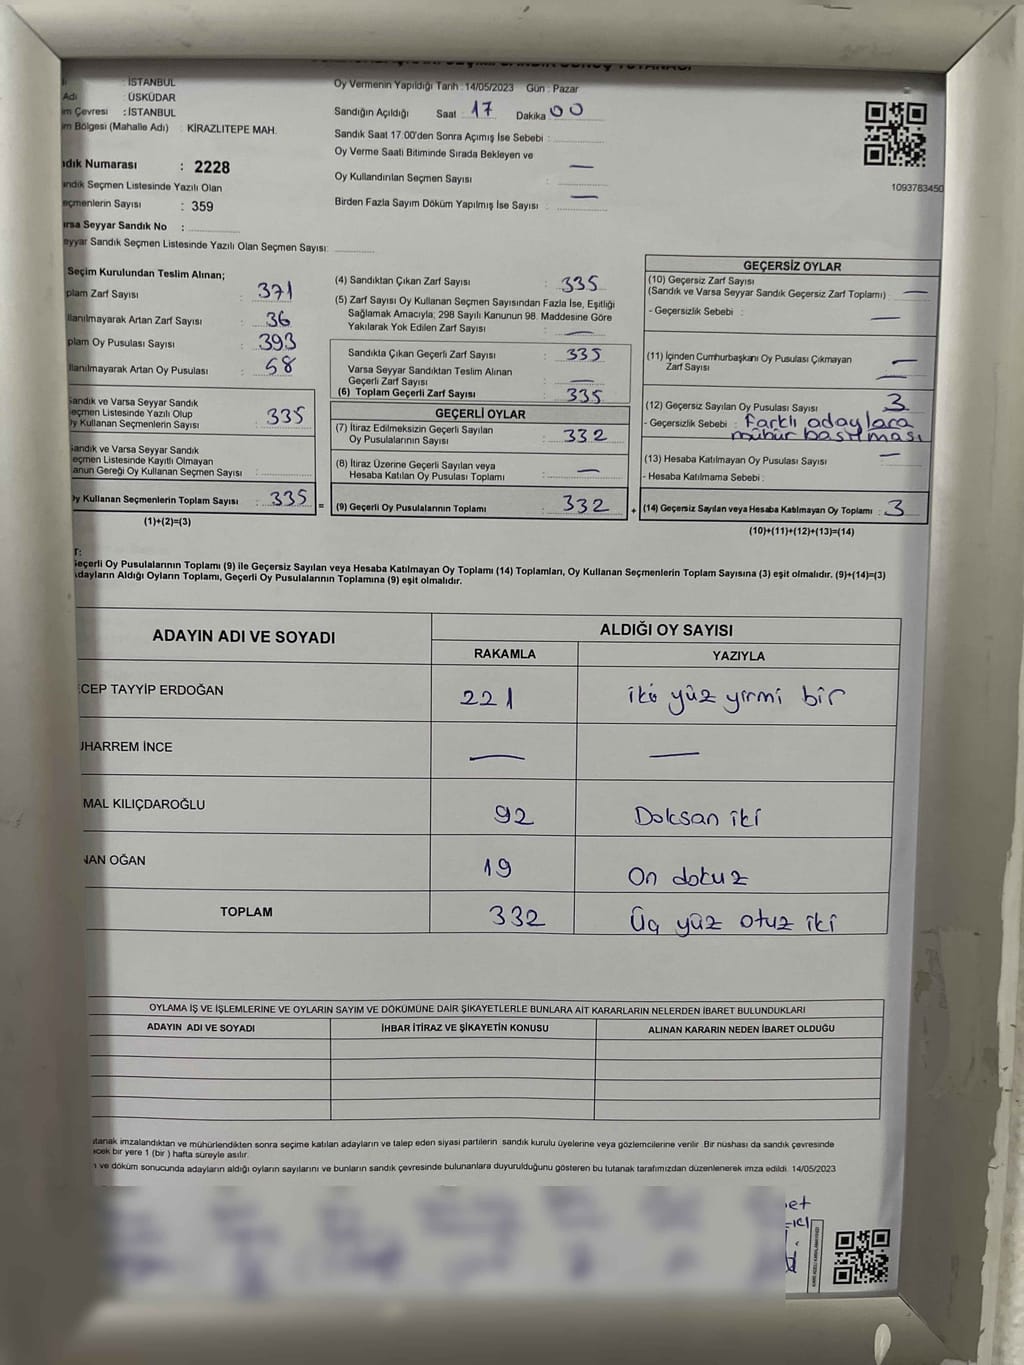 İSTANBUL
Adı : ÜSKÜDAR
im Çevresi : İSTANBUL
im Bölgesi (Mahalle Adı) : KİRAZLITEPE MAH.
ndık Numarası : 2228
andık Seçmen Listesinde Yazılı Olan
eçmenlerin Sayısı : 359
arsa Seyyar Sandık No :
eyyar Sandık Seçmen Listesinde Yazılı Olan Seçmen Sayısı:
Oy Vermenin Yapıldığı Tarih : 14/05/2023 Gün : Pazar
Sandığın Açıldığı Saat : 17 Dakika 00
Sandık Saat 17:00'den Sonra Açımış İse Sebebi :
Oy Verme Saati Bitiminde Sırada Bekleyen ve
Oy Kullandırılan Seçmen Sayısı : —
Birden Fazla Sayım Döküm Yapılmış İse Sayısı : —
1093763450
Seçim Kurulundan Teslim Alınan;
plam Zarf Sayısı : 371
llanılmayarak Artan Zarf Sayısı : 36
plam Oy Pusulası Sayısı : 393
llanılmayarak Artan Oy Pusulası : 58
Sandık ve Varsa Seyyar Sandık
eçmen Listesinde Yazılı Olup
Oy Kullanan Seçmenlerin Sayısı : 335
Sandık ve Varsa Seyyar Sandık
eçmen Listesinde Kayıtlı Olmayan
anun Gereği Oy Kullanan Seçmen Sayısı :
Oy Kullanan Seçmenlerin Toplam Sayısı : 335
(1)+(2)=(3)
(4) Sandıktan Çıkan Zarf Sayısı : 335
(5) Zarf Sayısı Oy Kullanan Seçmen Sayısından Fazla İse, Eşitliği
Sağlamak Amacıyla; 298 Sayılı Kanunun 98. Maddesine Göre
Yakılarak Yok Edilen Zarf Sayısı : —
Sandıkta Çıkan Geçerli Zarf Sayısı : 335
Varsa Seyyar Sandıktan Teslim Alınan
Geçerli Zarf Sayısı : —
(6) Toplam Geçerli Zarf Sayısı : 335
GEÇERLİ OYLAR
(7) İtiraz Edilmeksizin Geçerli Sayılan
Oy Pusulalarının Sayısı : 332
(8) İtiraz Üzerine Geçerli Sayılan veya
Hesaba Katılan Oy Pusulası Toplamı : —
= (9) Geçerli Oy Pusulalarının Toplamı : 332
GEÇERSİZ OYLAR
(10) Geçersiz Zarf Sayısı
(Sandık ve Varsa Seyyar Sandık Geçersiz Zarf Toplamı) : —
- Geçersizlik Sebebi : —
(11) İçinden Cumhurbaşkanı Oy Pusulası Çıkmayan
Zarf Sayısı : —
(12) Geçersiz Sayılan Oy Pusulası Sayısı : 3
- Geçersizlik Sebebi : farklı adaylara
mühür basılması
(13) Hesaba Katılmayan Oy Pusulası Sayısı : —
- Hesaba Katılmama Sebebi :
+ (14) Geçersiz Sayılan veya Hesaba Katılmayan Oy Toplamı : 3
(10)+(11)+(12)+(13)=(14)
T:
Geçerli Oy Pusulalarının Toplamı (9) ile Geçersiz Sayılan veya Hesaba Katılmayan Oy Toplamı (14) Toplamları, Oy Kullanan Seçmenlerin Toplam Sayısına (3) eşit olmalıdır. (9)+(14)=(3)
Adayların Aldığı Oyların Toplamı, Geçerli Oy Pusulalarının Toplamına (9) eşit olmalıdır.
ADAYIN ADI VE SOYADI
ALDIĞI OY SAYISI
RAKAMLA YAZIYLA
CEP TAYYİP ERDOĞAN 221 iki yüz yirmi bir
UHARREM İNCE — —
MAL KILIÇDAROĞLU 92 Doksan iki
NAN OĞAN 19 On dokuz
TOPLAM 332 Üç yüz otuz iki
OYLAMA İŞ VE İŞLEMLERİNE VE OYLARIN SAYIM VE DÖKÜMÜNE DAİR ŞİKAYETLERLE BUNLARA AİT KARARLARIN NELERDEN İBARET BULUNDUKLARI
ADAYIN ADI VE SOYADI İHBAR İTİRAZ VE ŞİKAYETİN KONUSU ALINAN KARARIN NEDEN İBARET OLDUĞU
utanak imzalandıktan ve mühürlendikten sonra seçime katılan adayların ve talep eden siyasi partilerin sandık kurulu üyelerine veya gözlemcilerine verilir. Bir nüshası da sandık çevresinde
ecek bir yere 1 (bir) hafta süreyle asılır.
ı ve döküm sonucunda adayların aldığı oyların sayılarını ve bunların sandık çevresinde bulunanlara duyurulduğunu gösteren bu tutanak tarafımızdan düzenlenerek imza edildi. 14/05/2023